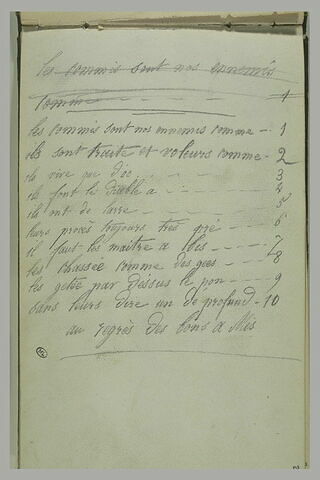 les commis sont nos ennemis
comme - - - - 1
les commis sont nos ennemis comme - 1
ils sont truite et voleurs comme - 2
ils vive que d'oc - - - 3
ils font le diable a - - - 4
ils nt. de larre - - - 5
leurs procès toujours très gré - - - 6
il faut les maitre a bas - - - 7
les chassée comme des gees - - - 8
les getse par dessus le pon - - - 9
sans leurs dire un de profund - 10
au regrès des bons a Mis